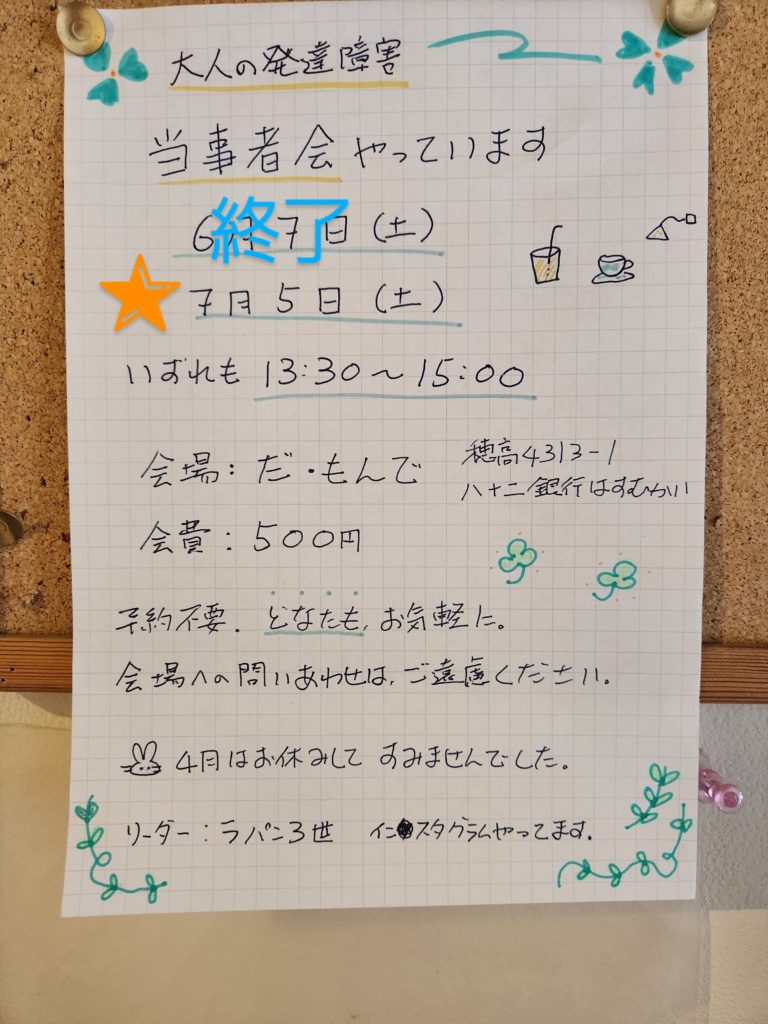 大人の発達障害
当事者会やっています
6月7日(土)
終了
7月5日(土)
いずれも 13:30〜15:00
会場:だ・もんで
穂高4313-1
八十二銀行はすむかい
会費:500円
予約不要. どなたも, お気軽に。
会場への問いあわせは, ご遠慮ください。
4月はお休みして すみませんでした。
リーダー:ラパン3世 インスタグラムやってます.